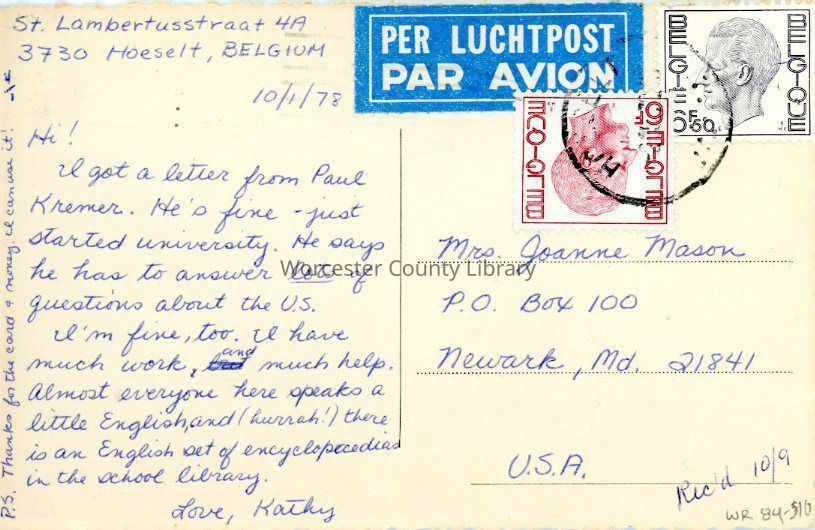 St. Lambertusstraat 4A
3730 Hoeselt, BELGIUM
10/1/78
Hi!
I got a letter from Paul
Kremer. He's fine - just
started university. He says
he has to answer lots of
questions about the U.S.
I'm fine, too. I have
much work, and much help.
Almost everyone here speaks a
little English, and (hurrah!) there
is an English set of encyclopaedias
in the school library.
Love, Kathy
P.S. Thanks for the card & money. I can use it!
PER LUCHTPOST
PAR AVION
BELGIE BELGIQUE
6F50
BELGIE BELGIQUE
9F
Mrs. Joanne Mason
P.O. Box 100
Newark, Md. 21841
U.S.A.
Rec'd 10/9
WR 84-510
Worcester County Library